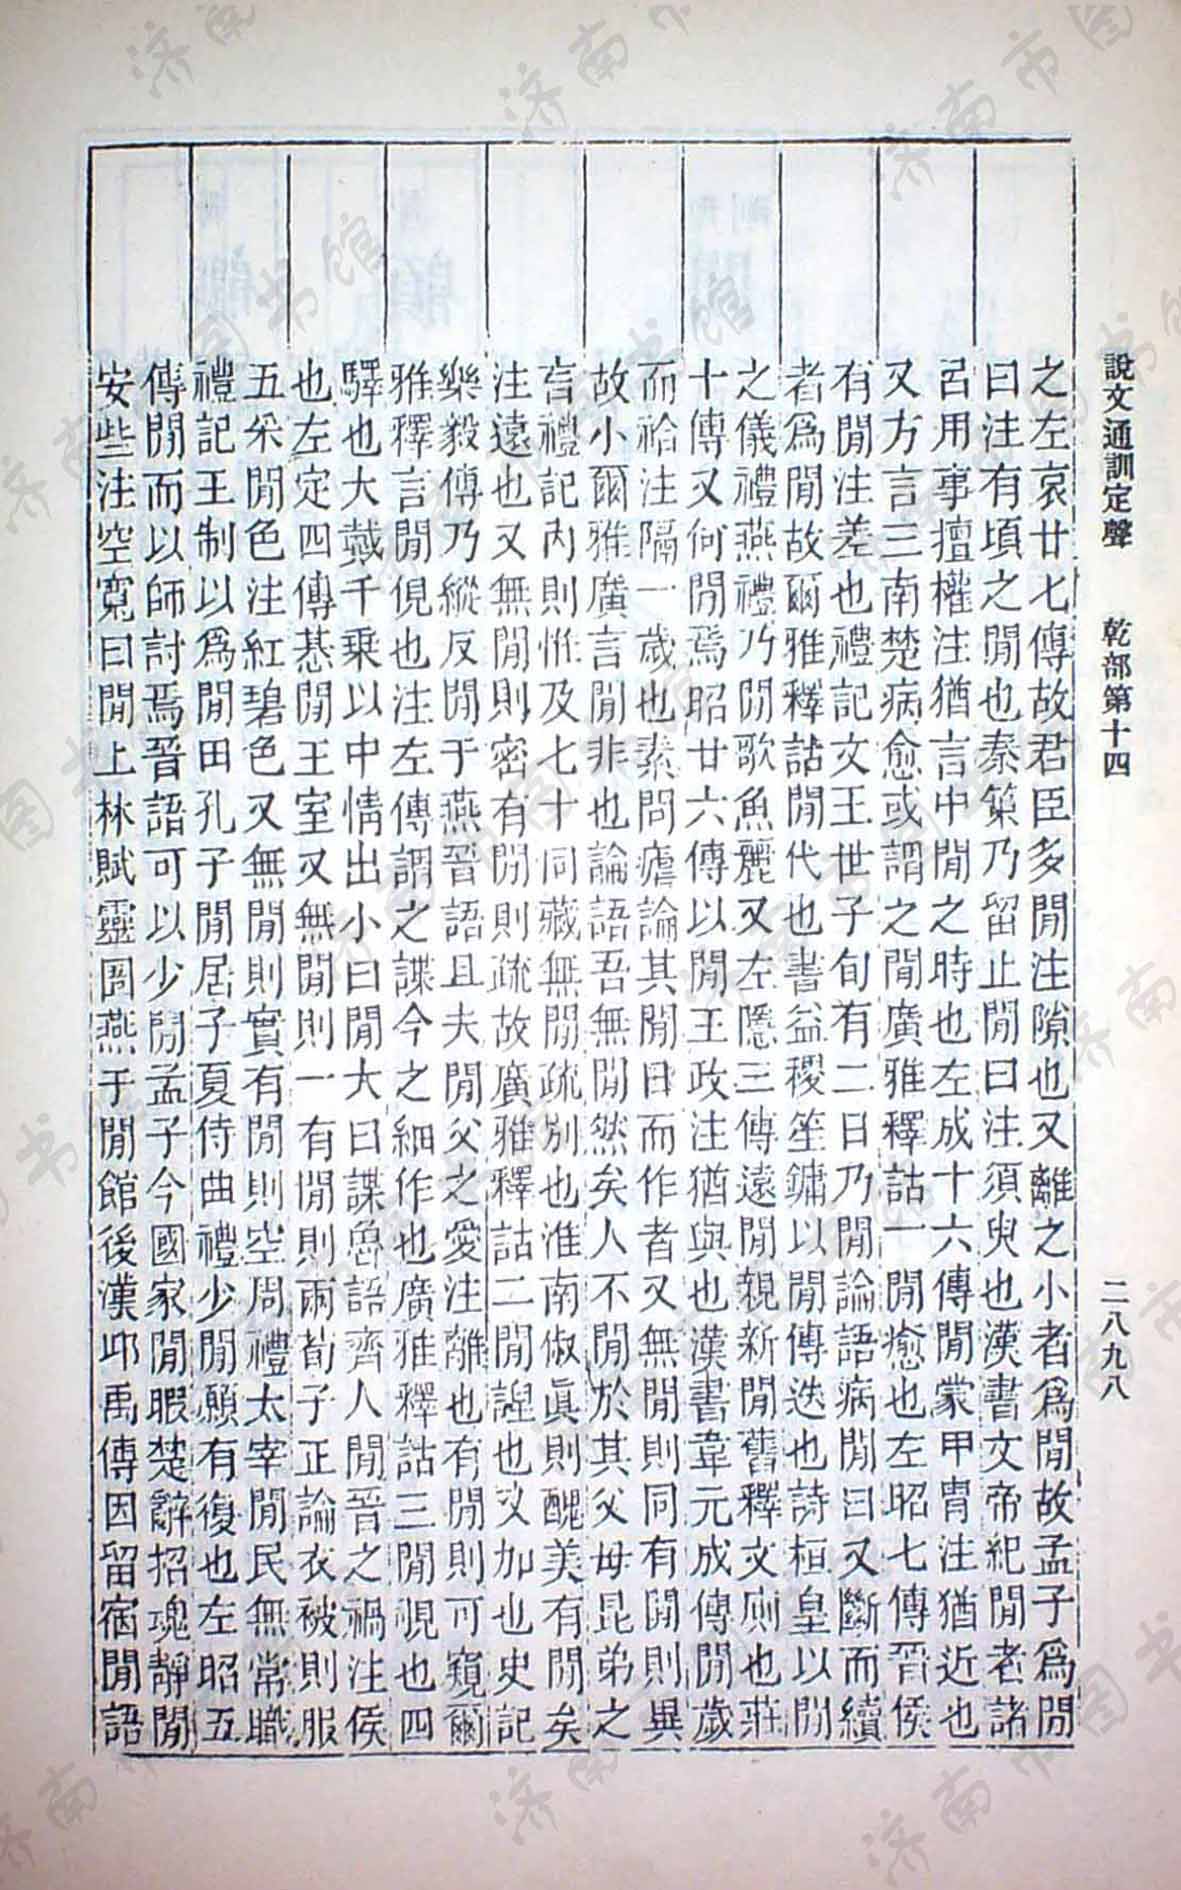 說文通訓定聲　乾部第十四　二八九八
之左哀廿七傳故君臣多閒注隙也又離之小者爲閒故孟子爲閒
曰注有頃之閒也秦策乃留止閒曰注須臾也漢書文帝紀閒者諸
呂用事擅權注猶言中閒之時也左成十六傳閒蒙甲冑注猶近也
又方言三南楚病愈或謂之閒廣雅釋詁一閒癒也左昭七傳晉侯
有閒注差也禮記文王世子旬有二日乃閒論語病閒曰又斷而續
者爲閒故爾雅釋詁閒代也書益稷笙鏞以閒傳迭也詩桓皇以閒
之儀禮燕禮乃閒歌魚麗又左隱三傳遠閒親新閒舊釋文廁也莊
十傳又何閒焉昭廿六傳以閒王政注猶與也漢書韋元成傳閒歲
而祫注隔一歲也素問瘧論其閒日而作者又無閒則同有閒則異
故小爾雅廣言閒非也論語吾無閒然矣人不閒於其父母昆弟之
言禮記內則惟及七十同藏無閒疏別也淮南俶眞則醜美有閒矣
注遠也又無閒則密有閒則疏故廣雅釋詁二閒諻也又加也史記
樂毅傳乃縱反閒于燕晉語且夫閒父之愛注離也有閒則可窺爾
雅釋言閒俔也注左傳謂之諜今之細作也廣雅釋詁三閒覗也四
驛也大戴千乗以中情出小曰閒大曰諜魯語齊人閒晉之禍注侯
也左定四傳惎閒王室又無閒則一有閒則兩荀子正論衣被則服
五采閒色注紅碧色又無閒則實有閒則空周禮太宰閒民無常職
禮記王制以爲閒田孔子閒居子夏侍曲禮少閒願有復也左昭五
傳閒而以師討焉晉語可以少閒孟子今國家閒暇楚辭招魂靜閒
安些注空寬曰閒上林賦靈圄燕于閒館後漢邛禹傳因留宿閒語